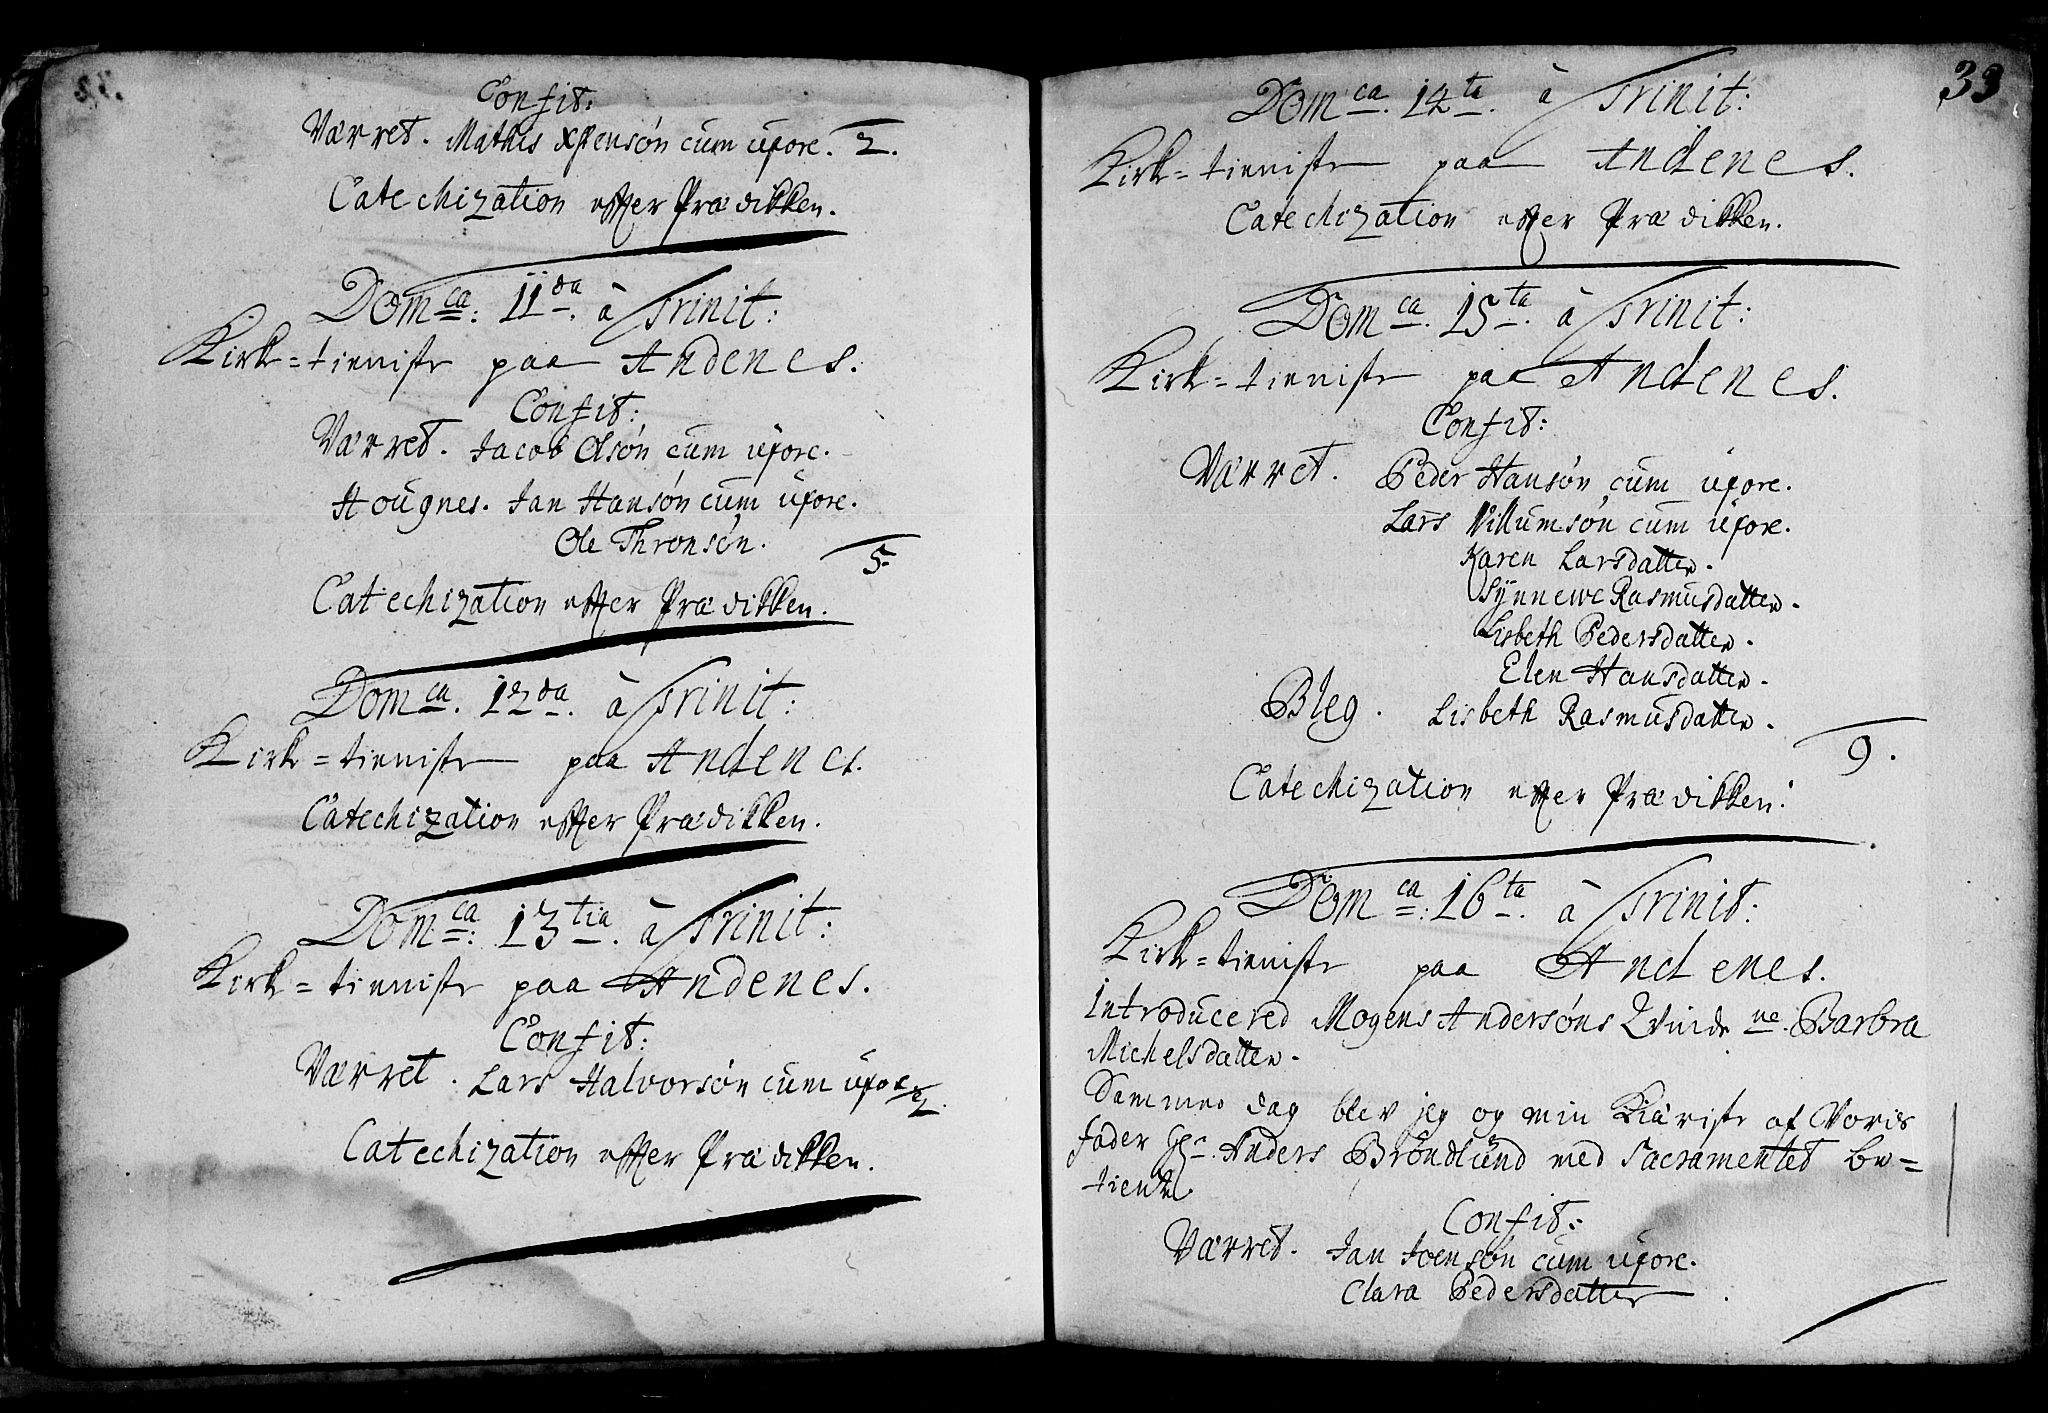 Confit:
Værret. Mathis Xstensøn cum uxore. 2.
Catechization effter Prædikken.
Dom:ca 11da à Trinit:
Kirk=tieniste paa Andenes.
Confit:
Værret. Jacob Olsøn cum uxore.
Hougnes. Jan Hansøn cum uxore.
Ole Thronsøn.
5
Catechization effter Prædikken.
Dom:ca 12da à Trinit:
Kirk=tieniste paa Andenes.
Catechization effter Prædikken.
Dom:ca 13tia à Trinit:
Kirk=tieniste paa Andenes.
Confit:
Værret. Lars Halvorsøn cum uxore 2.
Catechization effter Prædikken.
33
Dom:ca 14ta à Trinit:
Kirk=tieniste paa Andenes.
Catechization effter Prædikken.
Dom:ca 15ta à Trinit:
Kirk=tieniste paa Andenes.
Confit:
Værret. Peder Hansøn cum uxore.
Lars Villumsøn cum uxore.
Karen Larsdatter.
Synnewe Rasmusdatter.
Lisbeth Pedersdatter.
Elen Hansdatter.
Bleg. Lisbeth Rasmusdatter.
9.
Catechization effter Prædikken.
Dom:ca 16ta à Trinit:
Kirk=tieniste paa Andenes.
Introducered Mogens Andersøns Qvinde ne. Barbra
Michelsdatter.
Samme dag blev jeg og min Kiæriste af Voris
fader Hr. Anders Brøndlund med Sacramentet be=
tient.
Confit:
Værret. Jan Joensøn cum uxore.
Clara Pedersdatter.